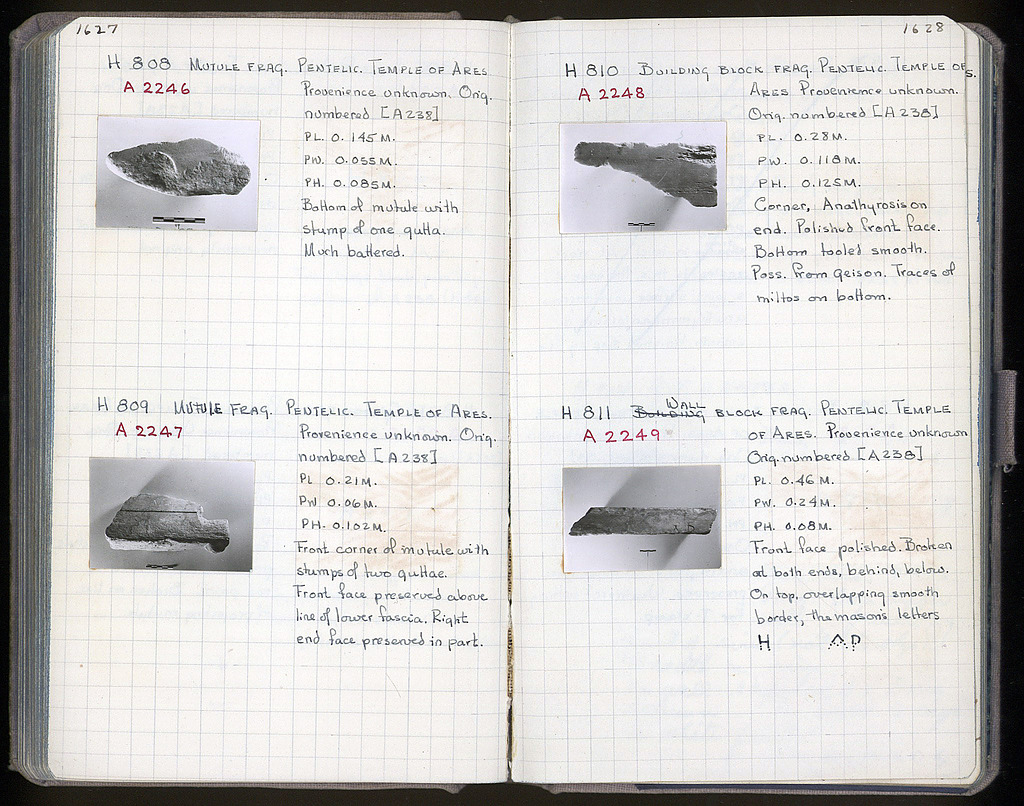 1627
H 808 MUTULE FRAG. PENTELIC. TEMPLE OF ARES
A 2246
Provenience unknown. Orig.
numbered [A238]
PL. 0.145M.
PW. 0.055M.
PH. 0.085M.
Bottom of mutule with
stump of one gutta.
Much battered.
H 809 MUTULE FRAG. PENTELIC. TEMPLE OF ARES.
A 2247
Provenience unknown. Orig.
numbered [A238]
PL 0.21M.
PW 0.06M.
PH. 0.102M.
Front corner of mutule with
stumps of two guttae.
Front face preserved above
line of lower fascia. Right
end face preserved in part.
1628
H 810 BUILDING BLOCK FRAG. PENTELIC. TEMPLE OF
A 2248
ARES Provenience unknown.
Orig. numbered [A238]
PL. 0.28M.
PW. 0.118M.
PH. 0.125M.
Corner, Anathyrosis on
end. Polished front face.
Bottom tooled smooth.
Poss. from geison. Traces of
miltos on bottom.
H 811 BUILDING WALL BLOCK FRAG. PENTELIC. TEMPLE
A 2249
OF ARES. Provenience unknown
Orig. numbered [A238]
PL. 0.46M.
PW. 0.24M.
PH. 0.08M.
Front face polished. Broken
at both ends, behind, below.
On top, overlapping smooth
border, the mason's letters
H